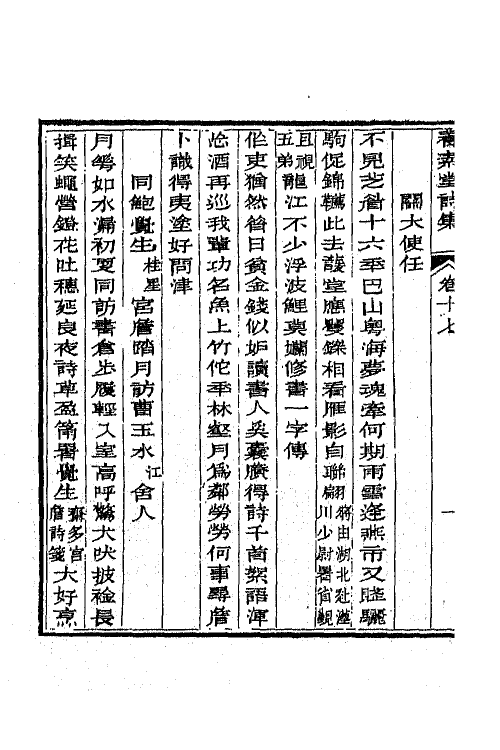 養素堂詩集 卷十七 一
關大使任
不見芝眉十六年巴山粵海夢魂牽何期雨雪逢燕市又聽驪
駒促錦韉此去護堂應矍鑠相看雁影自聯翩 將由湖北赴瀘川少尉署省覲
且視五弟 龍江不少浮波鯉莫嬾修書一字傳
作吏猶然昔日貧金錢似妒讀書人奚囊膡得詩千首絮語渾
忘酒再巡我輩功名魚上竹佗年林壑月爲鄰勞勞何事尋詹
卜識得夷塗好問津
同鮑覺生 桂星 宮詹踏月訪曹玉水 江 舍人
月華如水漏初夏同訪書倉步屧輕入室高呼驚犬吠披襟長
揖笑蠅營鐙花吐穗延良夜詩草盈筩署覺生 齋多宮詹詩箋 大好烹